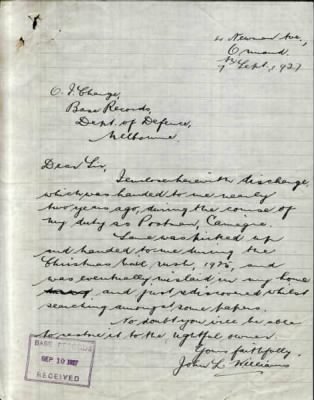 Newman Ave,
Ormond.
7th Sept, 1927
O. I/Charge,
Base Records,
Dept. of Defence,
Melbourne.
Dear Sir,
I enclose herewith discharge
which was handed to me nearly
two years ago, during the course of
my duty as Postman, Carnegie.
Same was picked up
and handed to me during the
Christmas mail rush 1925, and
was eventually mislaid in my home
and just rediscovered whilst
searching amongst some papers.
No doubt you will be able
to restore it to the rightful owner.
Yours faithfully,
John L Williams
BASE RECORDS
SEP 10 1927
RECEIVED